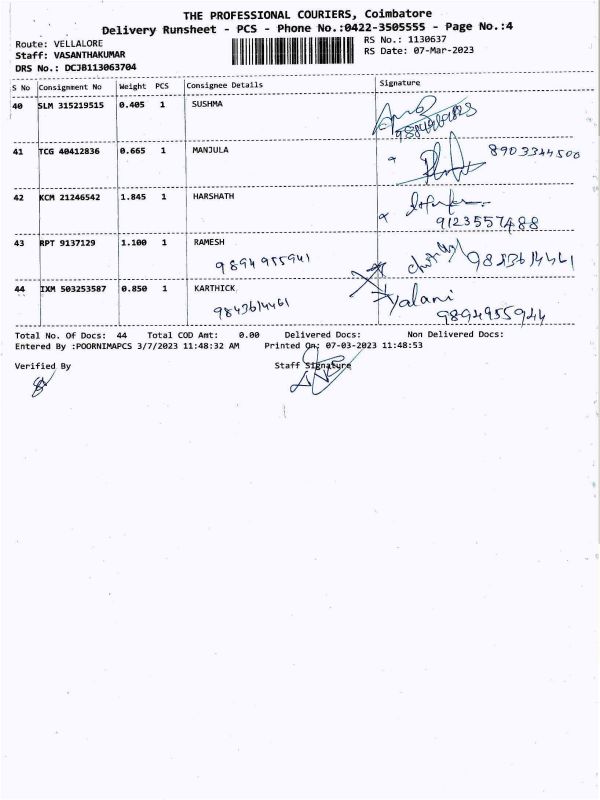 THE PROFESSIONAL COURIERS, Coimbatore
Delivery Runsheet - PCS - Phone No.:0422-3505555 - Page No.:4
Route: VELLALORE RS No.: 1130637
Staff: VASANTHAKUMAR RS Date: 07-Mar-2023
DRS No.: DCJB113063704
S No Consignment No Weight PCS Consignee Details Signature
40 SLM 315219515 0.405 1 SUSHMA
41 TCG 40412836 0.665 1 MANJULA 8903344500
42 KCM 21246542 1.845 1 HARSHATH
9123557488
43 RPT 9137129 1.100 1 RAMESH
9894955941 9843614461
44 IXM 503253587 0.850 1 KARTHICK
9843614461
9894955944
Total No. Of Docs: 44 Total COD Amt: 0.00 Delivered Docs: Non Delivered Docs:
Entered By :POORNIMAPCS 3/7/2023 11:48:32 AM Printed On: 07-03-2023 11:48:53
Verified By Staff Signature